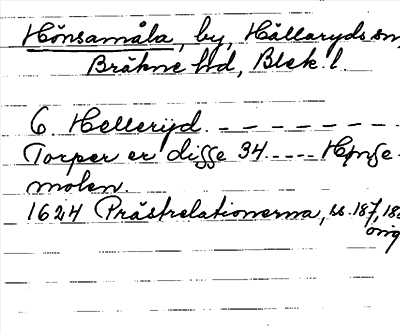 Hönsamåla, by, Hällaryds sn,
Bräkne hd, Blek. l.
6. Hellerijd. – – – – – – –
Torper er disse 34 ..... Hønse-
molen.
1624 Prästrelationerna, ss. 187, 188
orig